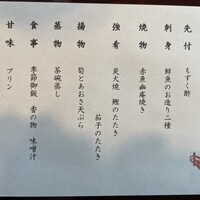 先付 もずく酢
刺身 鮮魚のお造り二種
焼物 赤魚幽庵焼き
強肴 炭火焼 鰹のたたき
茄子のたたき
揚物 筍とあおさ天ぷら
蒸物 茶碗蒸し
食事 季節御飯 香の物 味噌汁
甘味 プリン